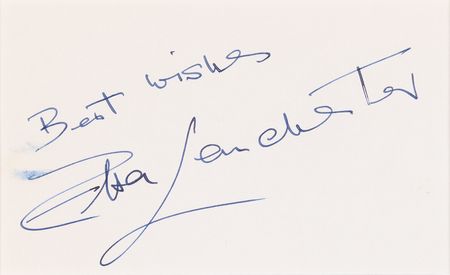 Best wishes
Elsa Lanchester